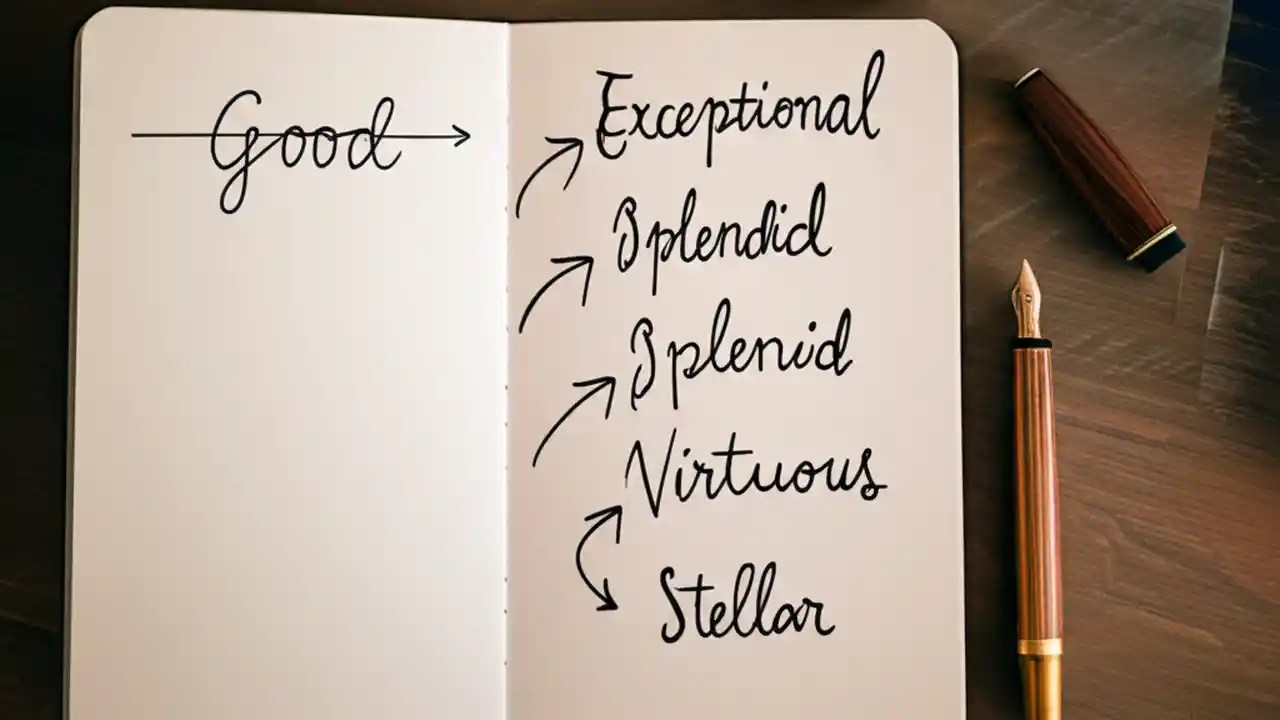 Good
Exceptional
Splendid
Splenid
Virtuous
Stellar